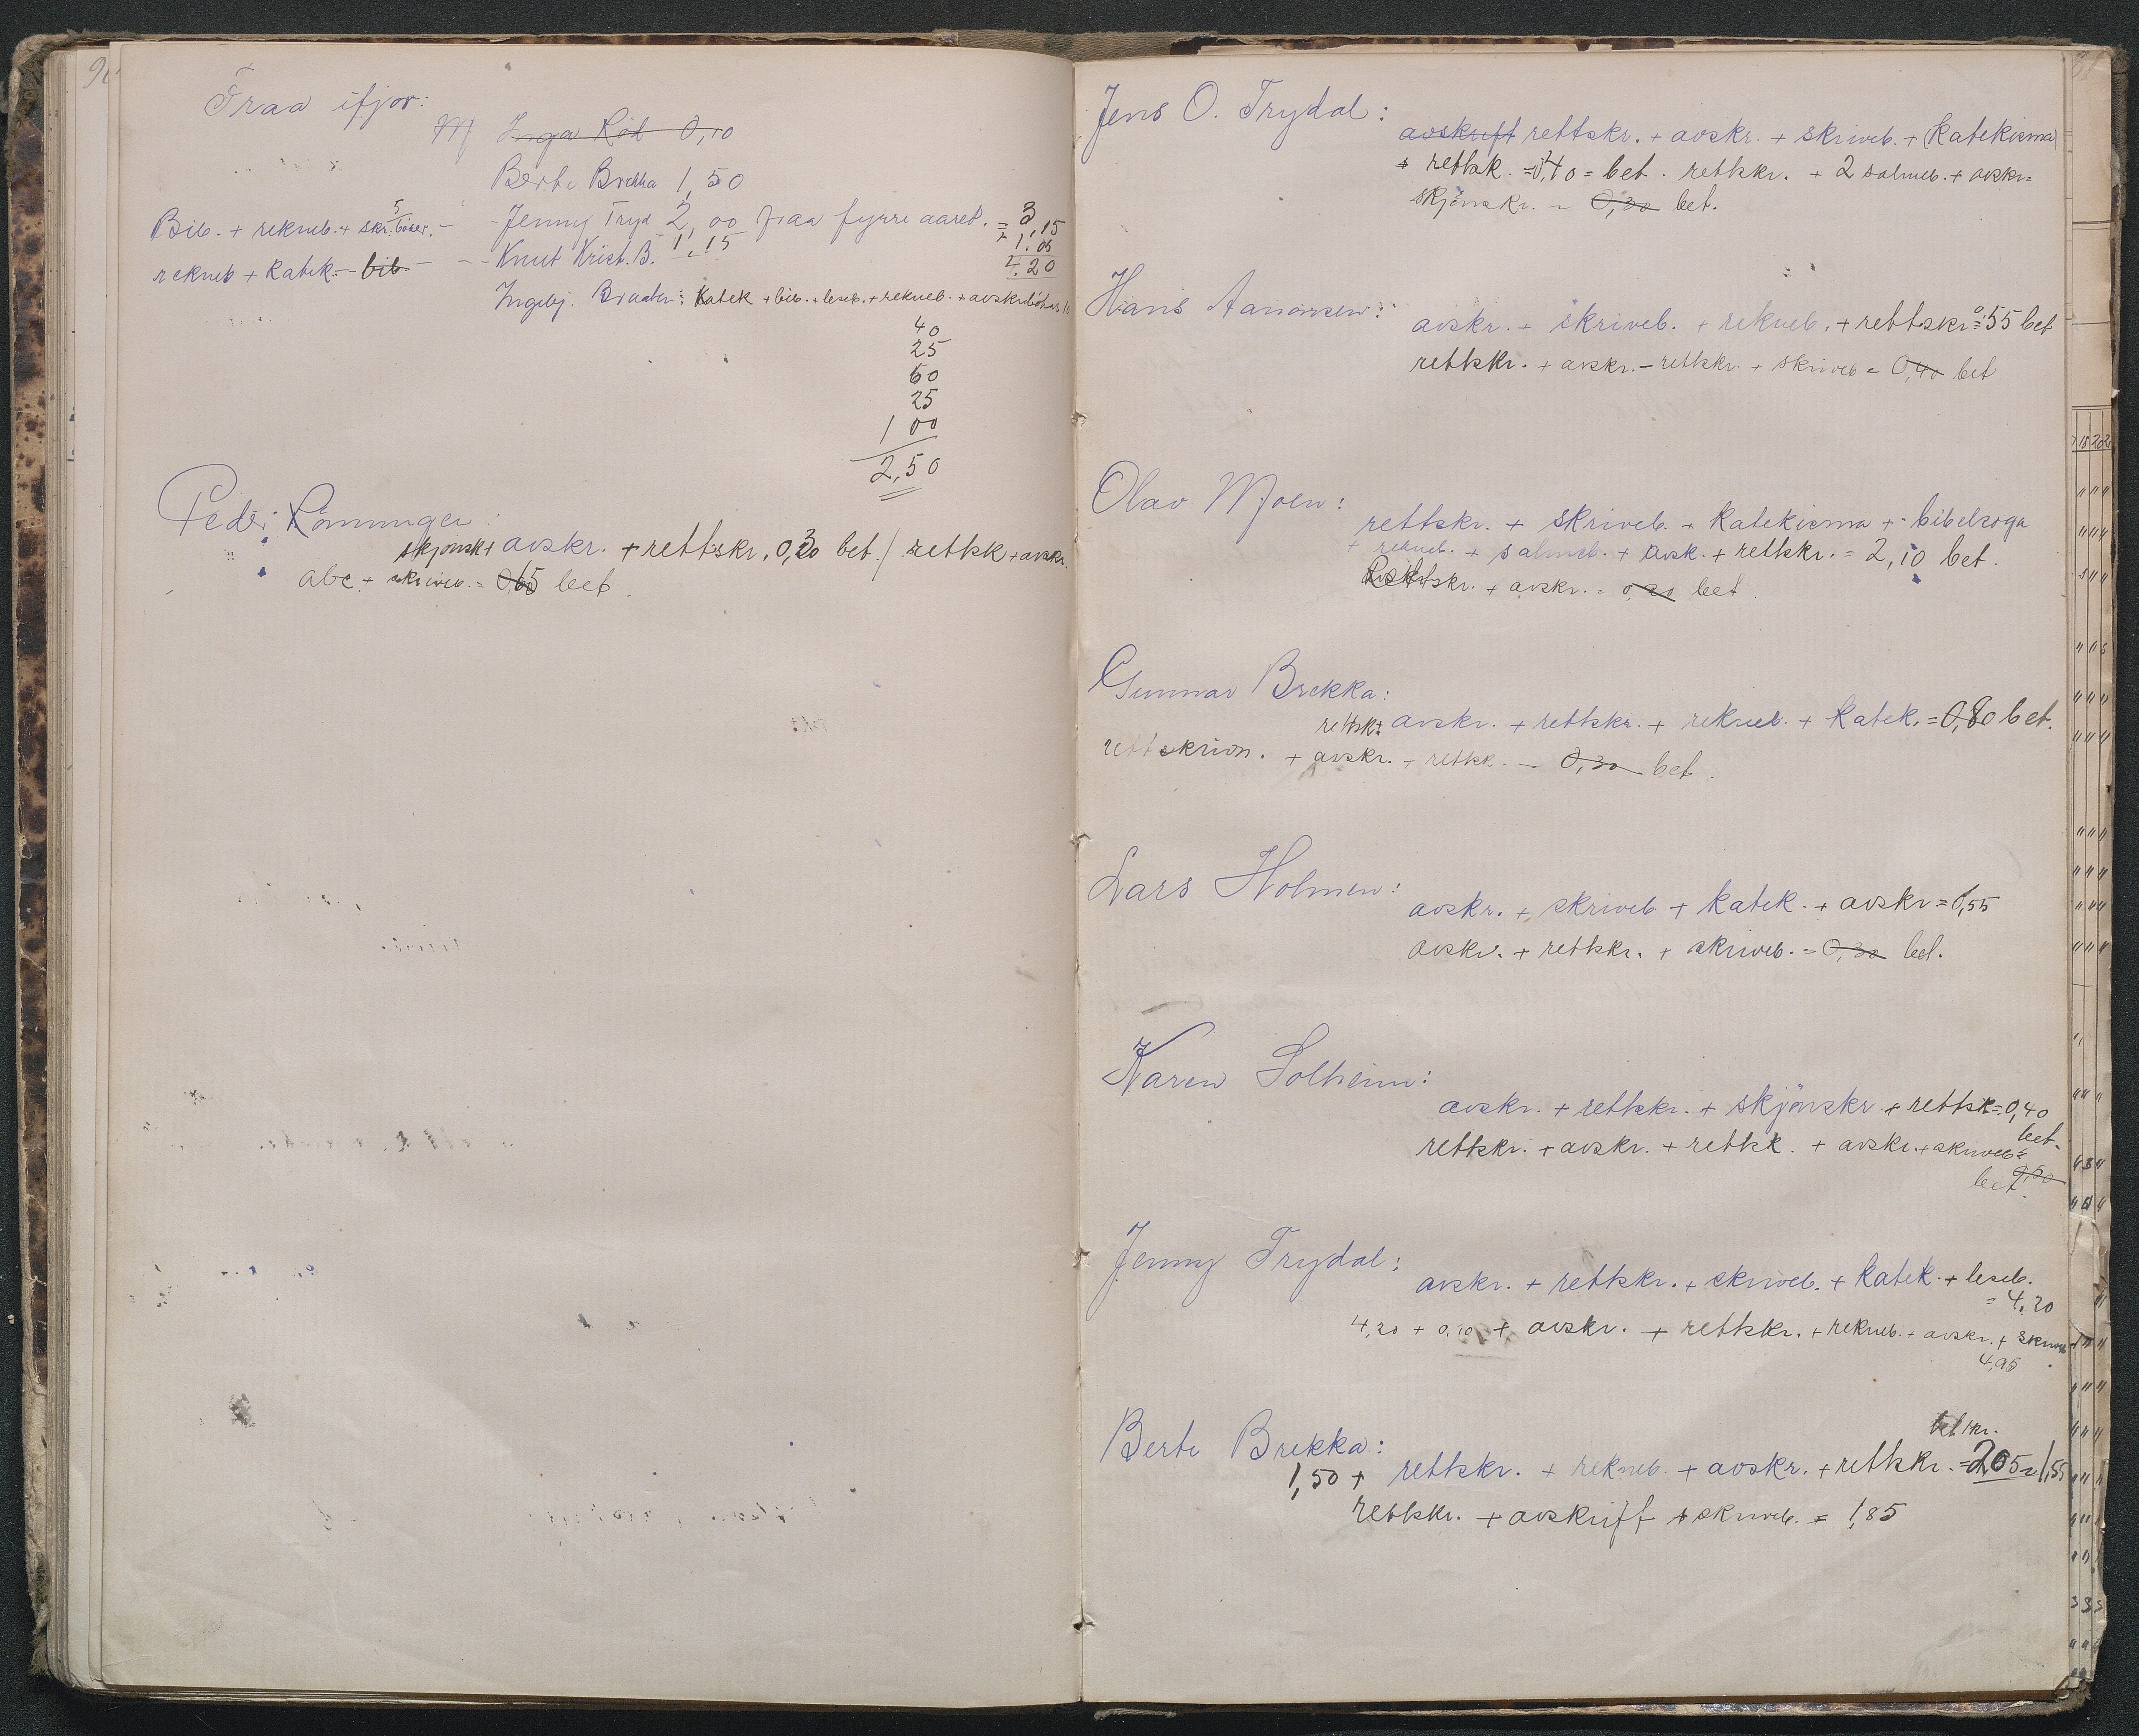 Fraa ifjor:
M Inga Röd 0,10
Berte Brekka 1,50
Bib. + rekneb. + 5 skr. böker. - Jenny Tryd 2,00 fraa fyrre aaret. = 3,15
+ 1.05
rekneb + Katek. - bib. - - Knut Krist. B. 1,15
4.20
Ingebj. Braaten: Katek + bib. + leseb. + rekneb. +
40
25
60
25
1 00
2,50
Peder Lönningen:
skjönsk + avskr. + rettskr. 0,30 bet. / rettsk + avskr.
abc + skriveb. = 0,65 bet.
Jens O. Trydal:
avskrift rettskr. + avskr. + skriveb. + (Katekisma)
+ rettsk. = 0,40 = bet. rettskr. + 2 salmeb. + avskr =
skjönskr. = 0,30 bet.
Hans Aanonsen:
avskr. + skriveb. + rekneb. + rettskr = 0,55 bet
rettskr. + avskr. - rettskr + skriveb = 0,40 bet
Olav Moen:
rettskr. + skriveb. + Katekisma + bibelsoga
+ rekneb. + salmeb. + avsk. + rettskr. = 2,10 bet.
Rettskr. + avskr. = 0,20 bet.
Gunnar Brekka:
rettsk + avskr. + rettskr. + rekneb. + Katek. = 0,80 bet.
rettskrivn. + avskr. + rettsk. - 0,30 bet.
Lars Holmen:
avskr. + skriveb + Katek. + avskr = 0,55
avskr. + rettskr. + skriveb. = 0,30 bet.
Karen Solheim:
avskr. + rettskr. + skjönskr + rettsk = 0,40
bet.
rettskr. + avskr. + rettsk. + avskr. + skriveb =
0,50
bet.
Jenny Trydal:
avskr. + rettskr. + skriveb. + Katek. + leseb.
= 4,20
4,20 + 0,10 + avskr. + rettskr. + rekneb. + avskr. + skriveb
4,95
Berte Brekka:
bet 1 kr.
1,50 + rettskr. + rekneb. + avskr. + rettskr. = 2,05 = 1,55
rettskr. + avskrift + skriveb. = 1,85